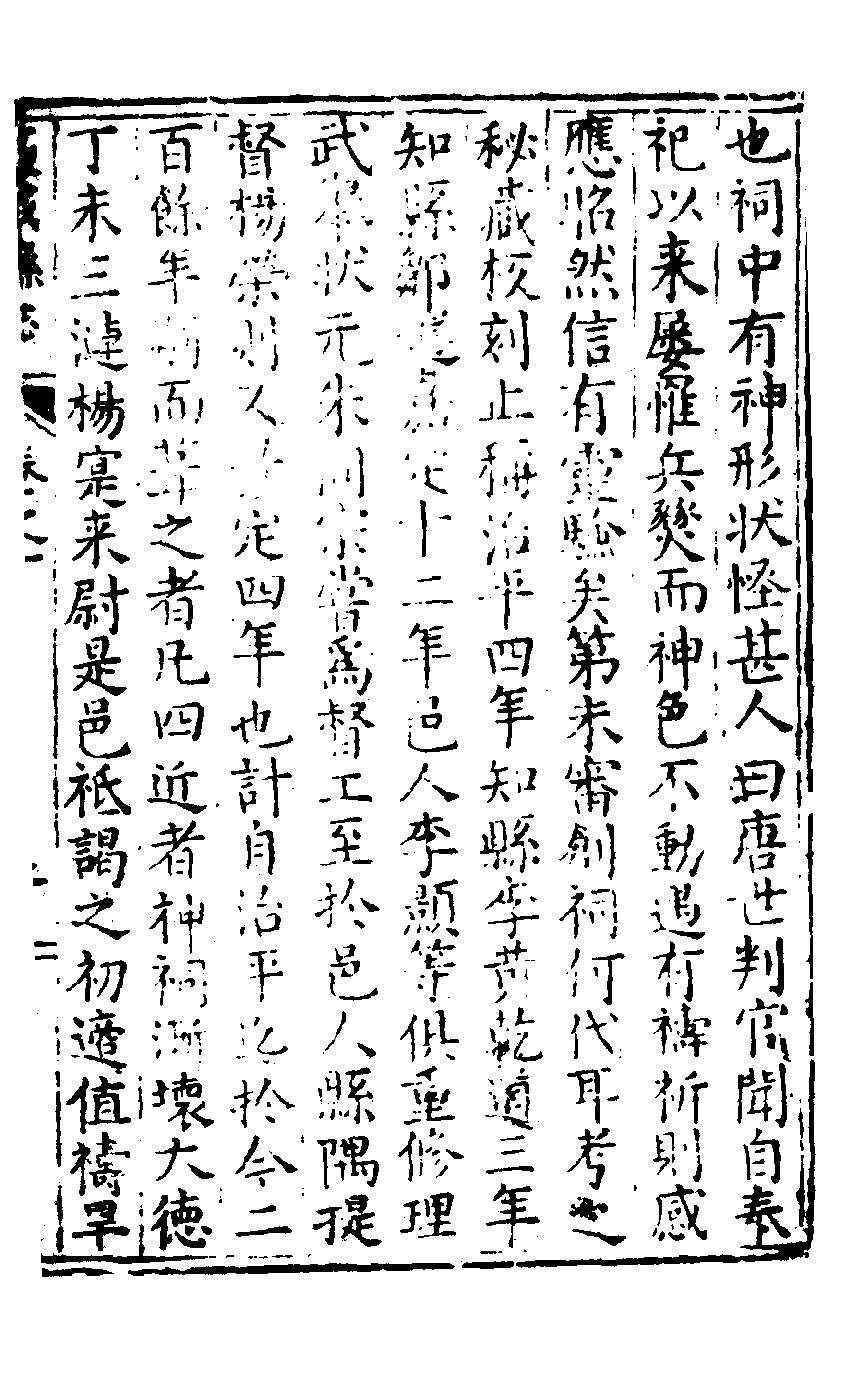 也祠中有神形状怪甚人曰唐世判官聞自奉
祀以来屡罹兵燹而神色不動遇有禱祈則感
應昭然信有靈驗矣第未審創祠何代耳考之
秘藏校刻止稱治平四年知縣李黄乾道三年
知縣鄒嘉定十二年邑人李顯等俱重修理
武状元朱嘗爲督工至於邑人縣隅提
督楊榮則又定四年也計自治平迄於今二
百餘年嗣而葺之者凡四近者神祠漸壞大德
丁未三漣楊寔来尉是邑祗謁之初適值禱旱
縣志
卷之一
十二